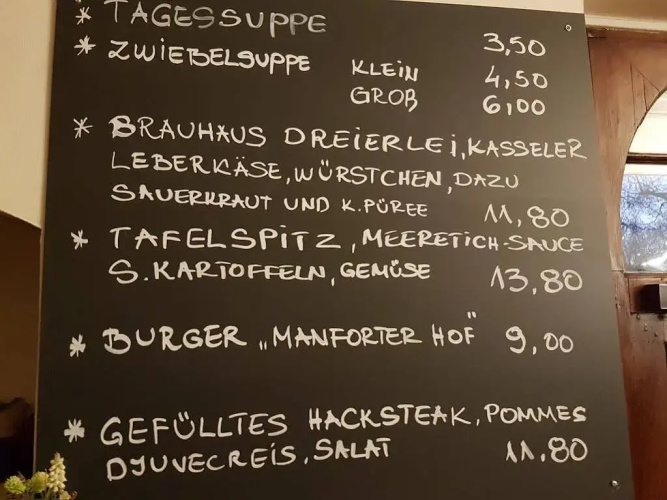 * TAGESSUPPE 3,50
* ZWIEBELSUPPE KLEIN 4,50
GROß 6,00
* BRAUHAUS DREIERLEI, KASSELER
LEBERKÄSE, WÜRSTCHEN, DAZU
SAUERKRAUT UND K.PÜREE 11,80
* TAFELSPITZ, MEERETICH-SAUCE
S.KARTOFFELN, GEMÜSE 13,80
* BURGER „MANFORTER HOF" 9,00
* GEFÜLLTES HACKSTEAK, POMMES
DJUVECREIS, SALAT 11.80